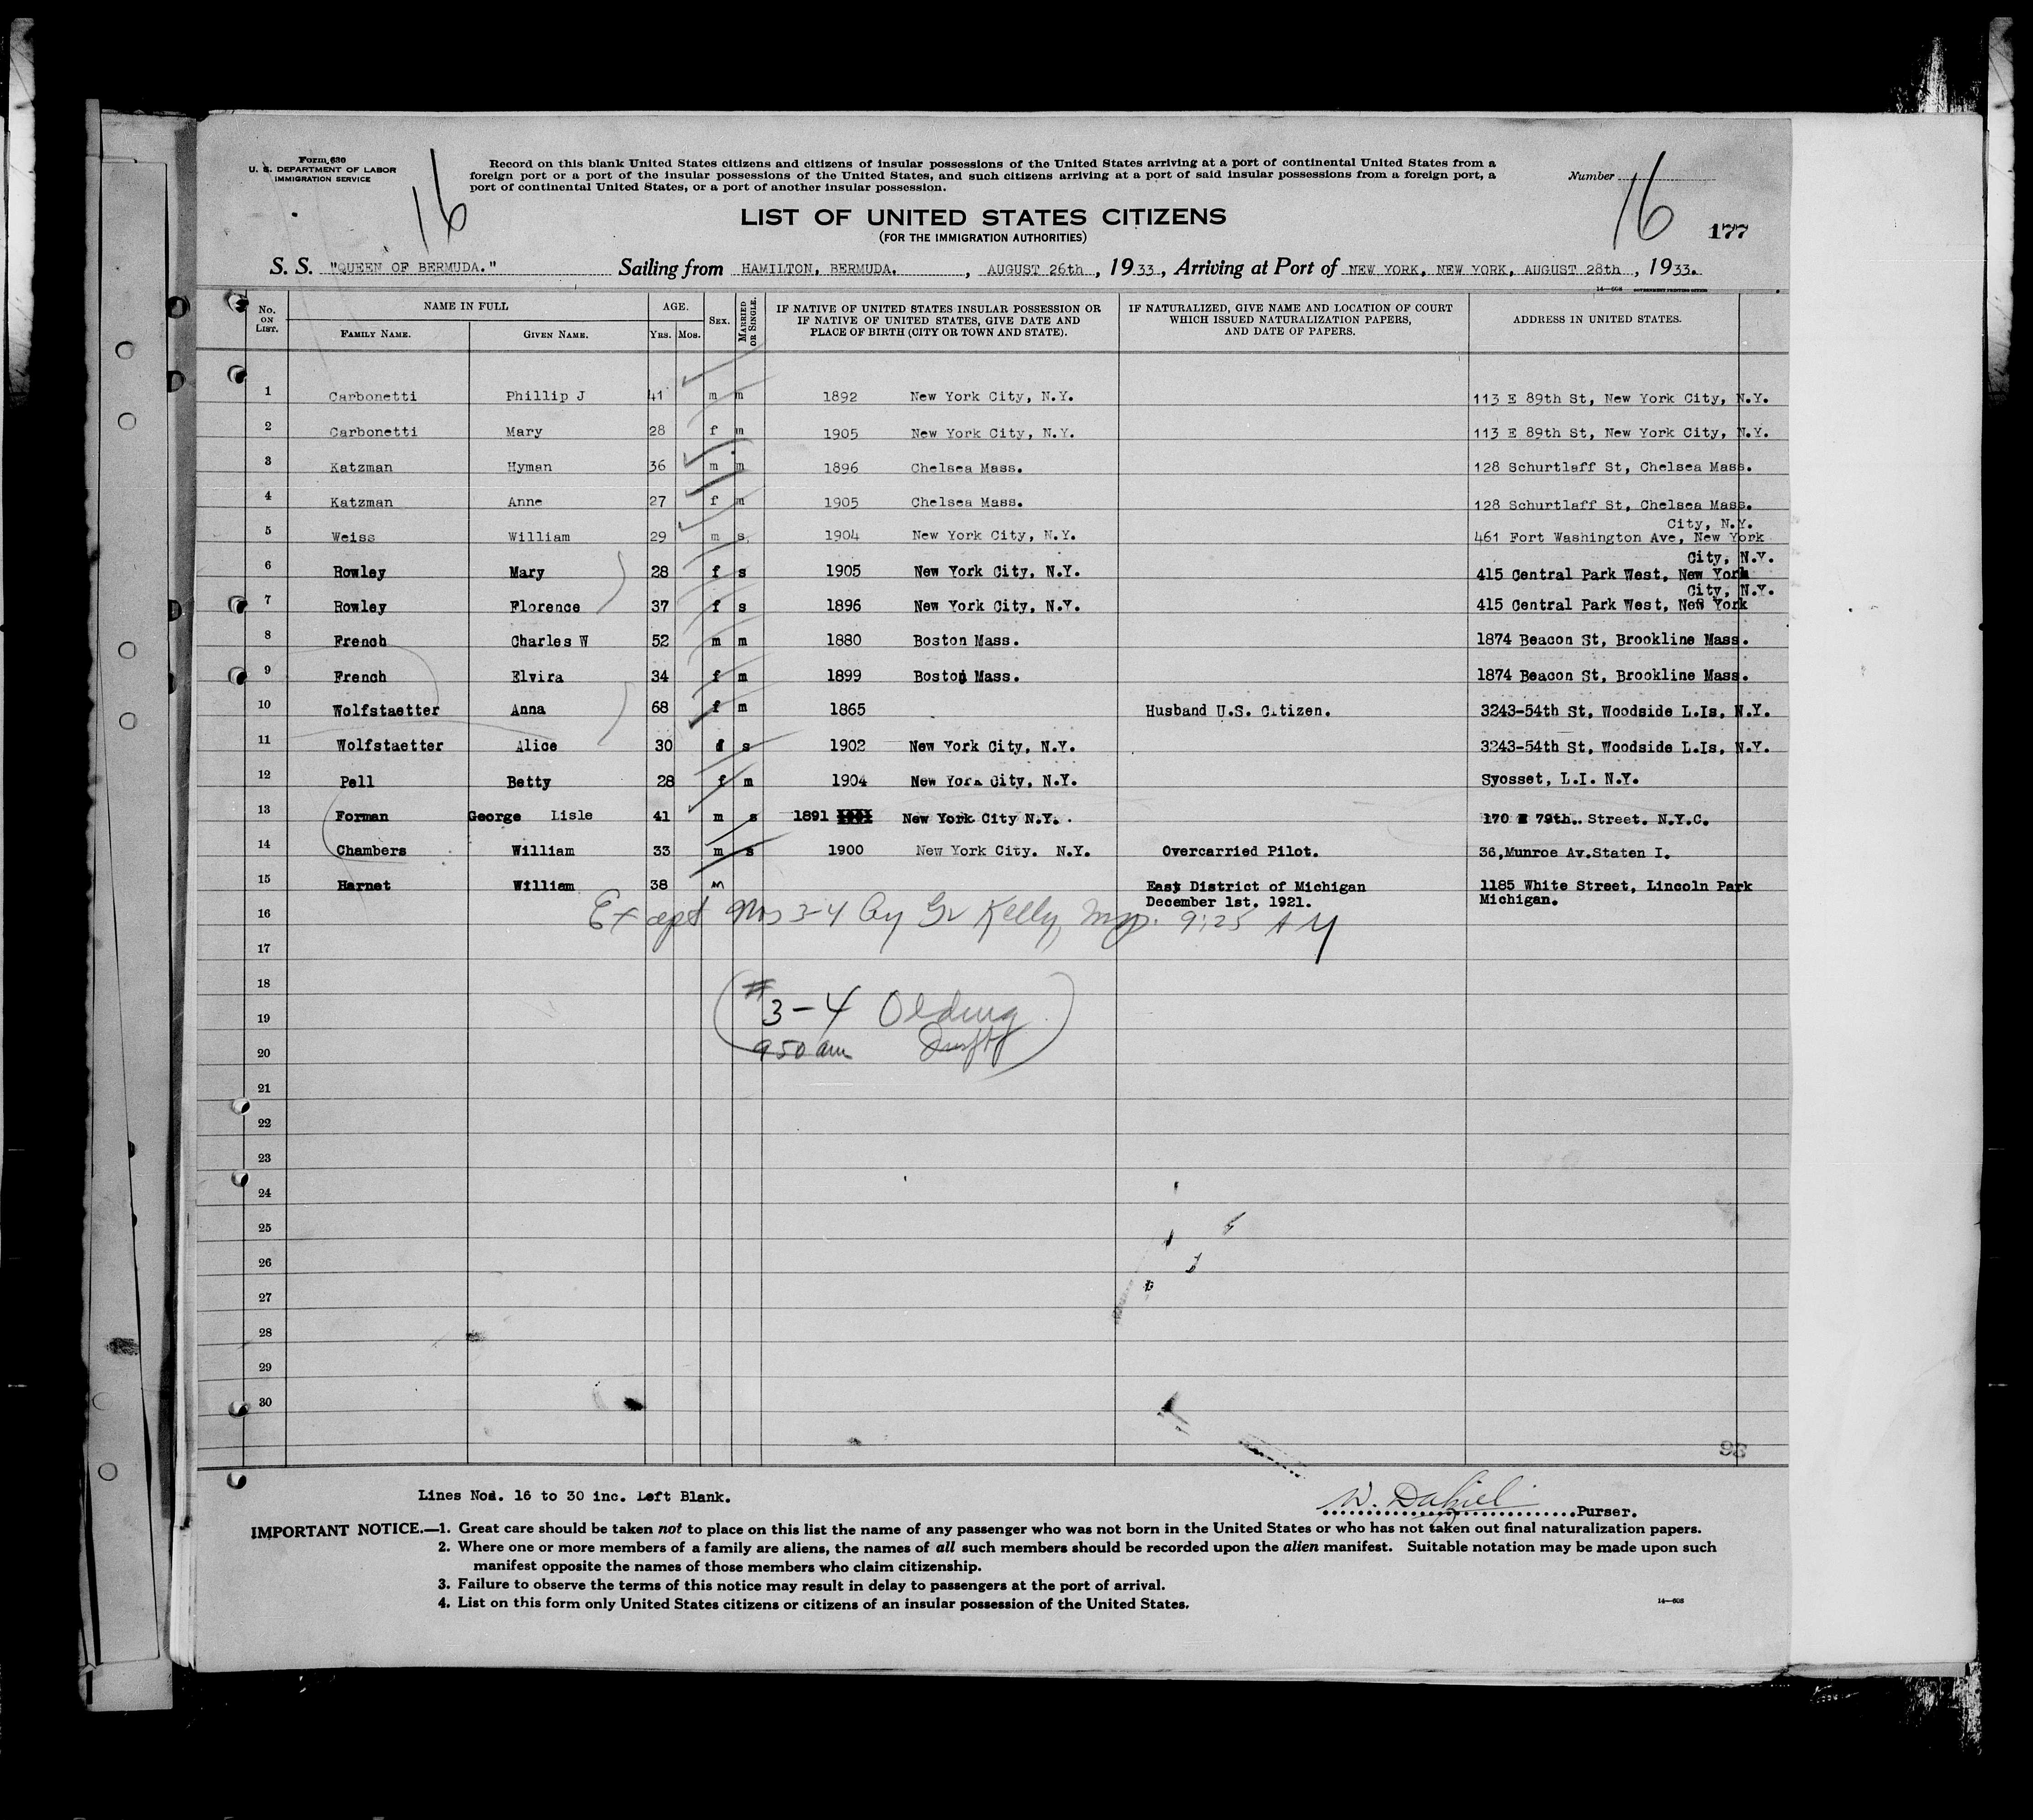 Form 630
U. S. DEPARTMENT OF LABOR
IMMIGRATION SERVICE
16
Record on this blank United States citizens and citizens of insular possessions of the United States arriving at a port of continental United States from a
foreign port or a port of the insular possessions of the United States, and such citizens arriving at a port of said insular possessions from a foreign port, a
port of continental United States, or a port of another insular possession.
Number 16
177
LIST OF UNITED STATES CITIZENS
(FOR THE IMMIGRATION AUTHORITIES)
S. S. "QUEEN OF BERMUDA." Sailing from HAMILTON, BERMUDA. , AUGUST 26th , 1933 , Arriving at Port of NEW YORK, NEW YORK, AUGUST 28th , 1933.
14—608 GOVERNMENT PRINTING OFFICE
No. ON LIST. NAME IN FULL FAMILY NAME. GIVEN NAME. AGE. YRS. MOS. SEX. MARRIED OR SINGLE. IF NATIVE OF UNITED STATES INSULAR POSSESSION OR IF NATIVE OF UNITED STATES, GIVE DATE AND PLACE OF BIRTH (CITY OR TOWN AND STATE). IF NATURALIZED, GIVE NAME AND LOCATION OF COURT WHICH ISSUED NATURALIZATION PAPERS, AND DATE OF PAPERS. ADDRESS IN UNITED STATES.
1 Carbonetti Phillip J 41 m m 1892 New York City, N.Y. 113 E 89th St, New York City, N.Y.
2 Carbonetti Mary 28 f m 1905 New York City, N.Y. 113 E 89th St, New York City, N.Y.
3 Katzman Hyman 36 m m 1896 Chelsea Mass. 128 Schurtlaff St, Chelsea Mass.
4 Katzman Anne 27 f m 1905 Chelsea Mass. 128 Schurtlaff St, Chelsea Mass.
City, N.Y.
5 Weiss William 29 m s 1904 New York City, N.Y. 461 Fort Washington Ave, New York
City, N.Y.
6 Rowley Mary 28 f s 1905 New York City, N.Y. 415 Central Park West, New York
City, N.Y.
7 Rowley Florence 37 f s 1896 New York City, N.Y. 415 Central Park West, New York
8 French Charles W 52 m m 1880 Boston Mass. 1874 Beacon St, Brookline Mass.
9 French Elvira 34 f m 1899 Boston Mass. 1874 Beacon St, Brookline Mass.
10 Wolfstaetter Anna 68 f m 1865 Husband U.S. Citizen. 3243-54th St, Woodside L.Is, N.Y.
11 Wolfstaetter Alice 30 f s 1902 New York City, N.Y. 3243-54th St, Woodside L.Is, N.Y.
12 Pell Betty 28 f m 1904 New York City, N.Y. Syosset, L.I. N.Y.
13 Forman George Lisle 41 m s 1891 New York City N.Y. 170 E 79th. Street. N.Y.C.
14 Chambers William 33 m s 1900 New York City. N.Y. Overcarried Pilot. 36,Munroe Av.Staten I.
15 Harnet William 38 m East District of Michigan 1185 White Street, Lincoln Park
December 1st. 1921. Michigan.
16 Except Nos 3-4 by Gv Kelly, Insp. 9:25 AM
17
18
19 #3-4 Olding
20 950 am
21
22
23
24
25
26
27
28
29
30
93
Lines Nos. 16 to 30 inc. Left Blank.
W. Dalziel Purser.
IMPORTANT NOTICE.—1. Great care should be taken not to place on this list the name of any passenger who was not born in the United States or who has not taken out final naturalization papers.
2. Where one or more members of a family are aliens, the names of all such members should be recorded upon the alien manifest. Suitable notation may be made upon such
manifest opposite the names of those members who claim citizenship.
3. Failure to observe the terms of this notice may result in delay to passengers at the port of arrival.
4. List on this form only United States citizens or citizens of an insular possession of the United States.
14—608